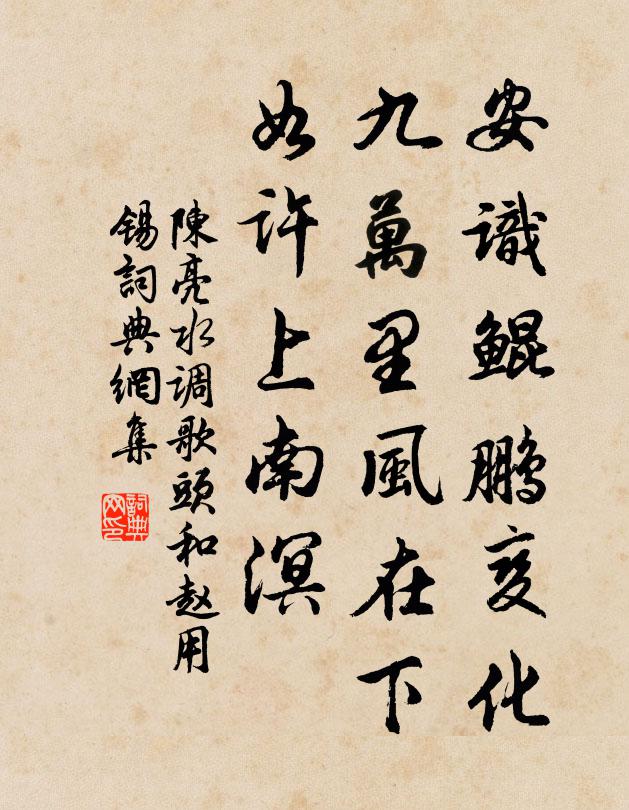 安識鯤鵬变化
九萬里風在下
如許上南溟
陳亮水调歌頭和赵用
锡詞典網集
詞典网印